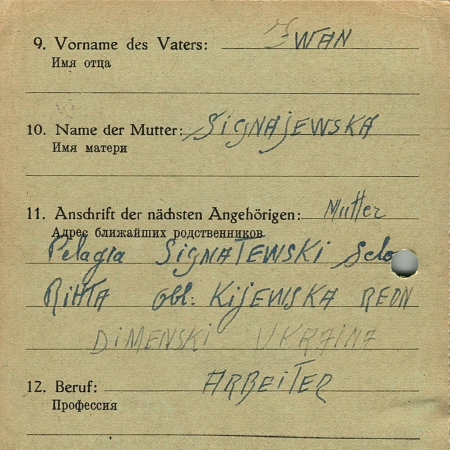 9. Vorname des Vaters: Iwan
Имя отца
10. Name der Mutter: SIGNAJEWSKA
Имя матери
11. Anschrift der nächsten Angehörigen: Mutter
Адрес ближайших родственников
Pelagia SIGNATEWSKI Selo
RIHTA obl: KIJEWSKA REON
DIMENSKI UKRAINA
12. Beruf: ARBEITER
Профессия